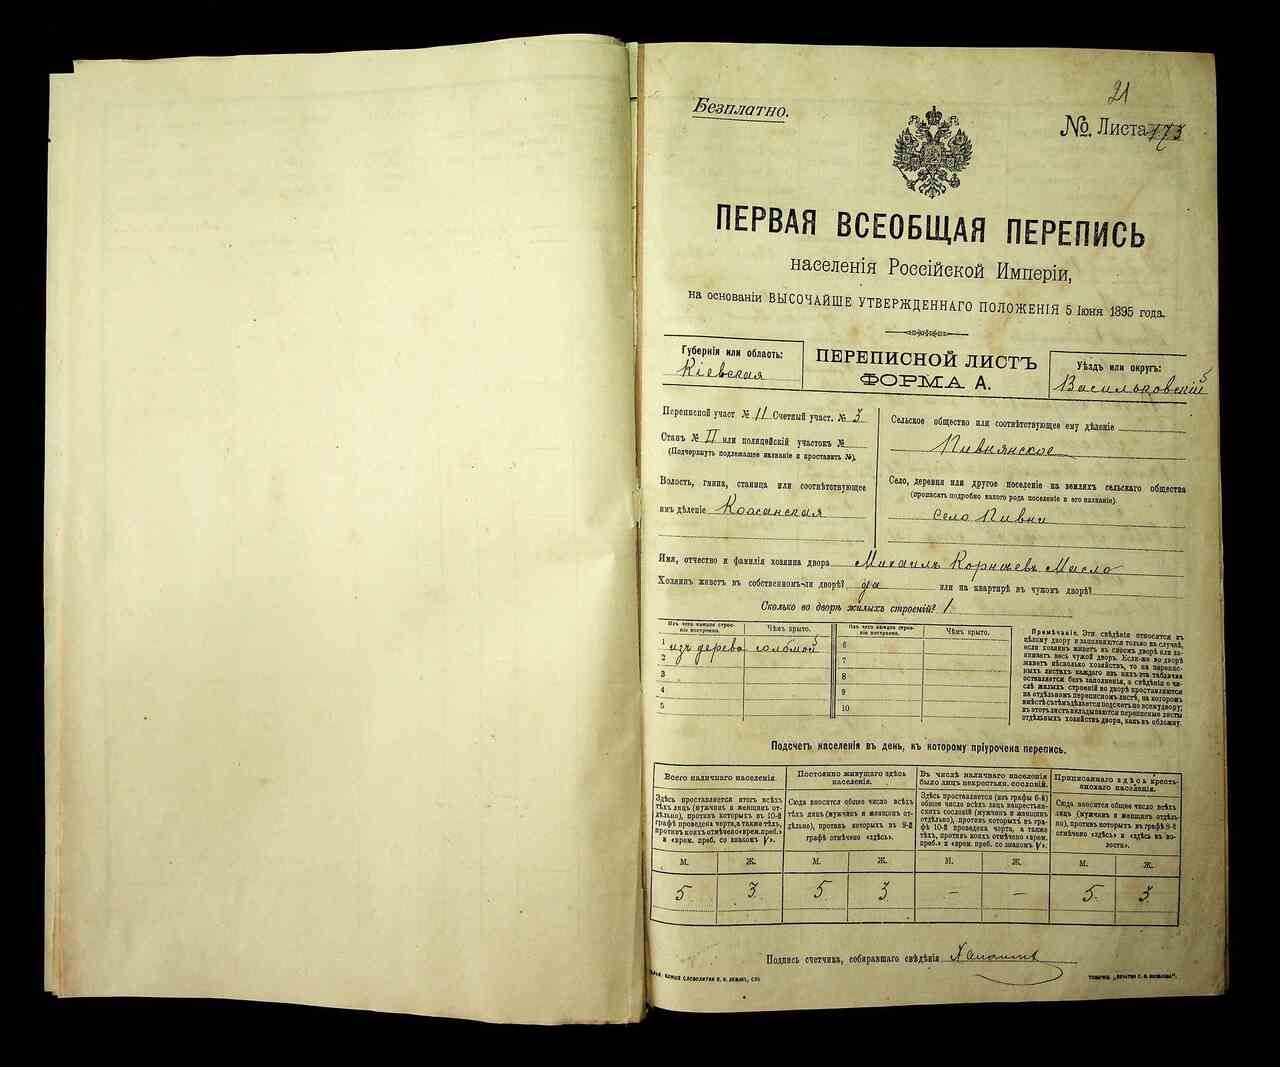 21
Безплатно.
№. Листа 173
ПЕРВАЯ ВСЕОБЩАЯ ПЕРЕПИСЬ
населенія Россійской Имперіи,
на основаніи ВЫСОЧАЙШЕ УТВЕРЖДЕННАГО ПОЛОЖЕНІЯ 5 Іюня 1895 года.
Губернія или область:
Кіевская
ПЕРЕПИСНОЙ ЛИСТЪ
ФОРМА А.
Уѣздъ или округъ:
Васильковскій
Переписной участ № 11 Счетный участ. № 3
Станъ № II или полицейскій участокъ №
(Подчеркнуть подлежащее названіе и проставить №).
Волость, гмина, станица или соотвѣтствующее
имъ дѣленіе
Сельское общество или соотвѣтствующее ему дѣленіе
Пивнянское
Село, деревня или другое поселеніе на земляхъ сельскаго общества
(прописать подробно какого рода поселеніе и его названіе).
село Пивни
Имя, отчество и фамилія хозяина двора Михаилъ Корнѣевъ Масло
Хозяинъ живетъ въ собственномъ-ли дворѣ? да или на квартирѣ въ чужомъ дворѣ?
Сколько во дворѣ жилыхъ строеній? 1
Изъ чего каждое строеніе построено.
Чѣмъ крыто.
1 изъ дерева соломой
2
3
4
5
Изъ чего каждое строеніе построено.
Чѣмъ крыто.
6
7
8
9
10
Примѣчаніе. Эти свѣдѣнія относятся къ
цѣлому двору и заполняются только въ случаѣ,
если хозяинъ живетъ въ своемъ дворѣ или занимаетъ
весь чужой дворъ. Если-же во дворѣ
живетъ нѣсколько хозяйствъ, то на переписныхъ
листахъ каждаго изъ нихъ эта табличка
оставляется безъ заполненія, а свѣдѣнія о числѣ
жилыхъ строеній во дворѣ проставляются
на отдѣльномъ переписномъ листѣ, на которомъ
вмѣстѣ съ тѣмъ дѣлается подсчетъ по всему двору;
въ этотъ листъ вкладываются переписные листы
отдѣльныхъ хозяйствъ двора, какъ въ обложку.
Подсчетъ населенія въ день, къ которому пріурочена перепись.
Всего наличнаго населенія.
Здѣсь проставляется итогъ всѣхъ
тѣхъ лицъ (мужчинъ и женщинъ отдѣльно),
противъ которыхъ въ 10-й
графѣ проведена черта, а также тѣхъ,
противъ коихъ отмѣчено «врем. преб.»
и «врем. преб. со знакомъ V».
М. Ж.
5 3
Постоянно живущаго здѣсь
населенія.
Сюда вносится общее число всѣхъ
тѣхъ лицъ (мужчинъ и женщинъ отдѣльно),
противъ которыхъ въ 9-й
графѣ отмѣчено «здѣсь».
М. Ж.
5 3
Въ числѣ наличнаго населенія
было лицъ некрестьян. сословій.
Здѣсь проставляется (изъ графы 6-й)
общее число всѣхъ лицъ некрестьянскихъ
сословій (мужчинъ и женщинъ
отдѣльно), противъ которыхъ въ графѣ
10-й проведена черта, а также
тѣхъ, противъ коихъ отмѣчено «врем.
преб.» и «врем. преб. со знакомъ V».
М. Ж.
– –
Приписаннаго здѣсь крестьянскаго
населенія.
Сюда вносится общее число всѣхъ
лицъ (мужчинъ и женщинъ отдѣльно),
противъ которыхъ въ графѣ 8-й
отмѣчено «здѣсь» и «здѣсь въ волости».
М. Ж.
5 3
Подпись счетчика, собиравшаго свѣдѣнія